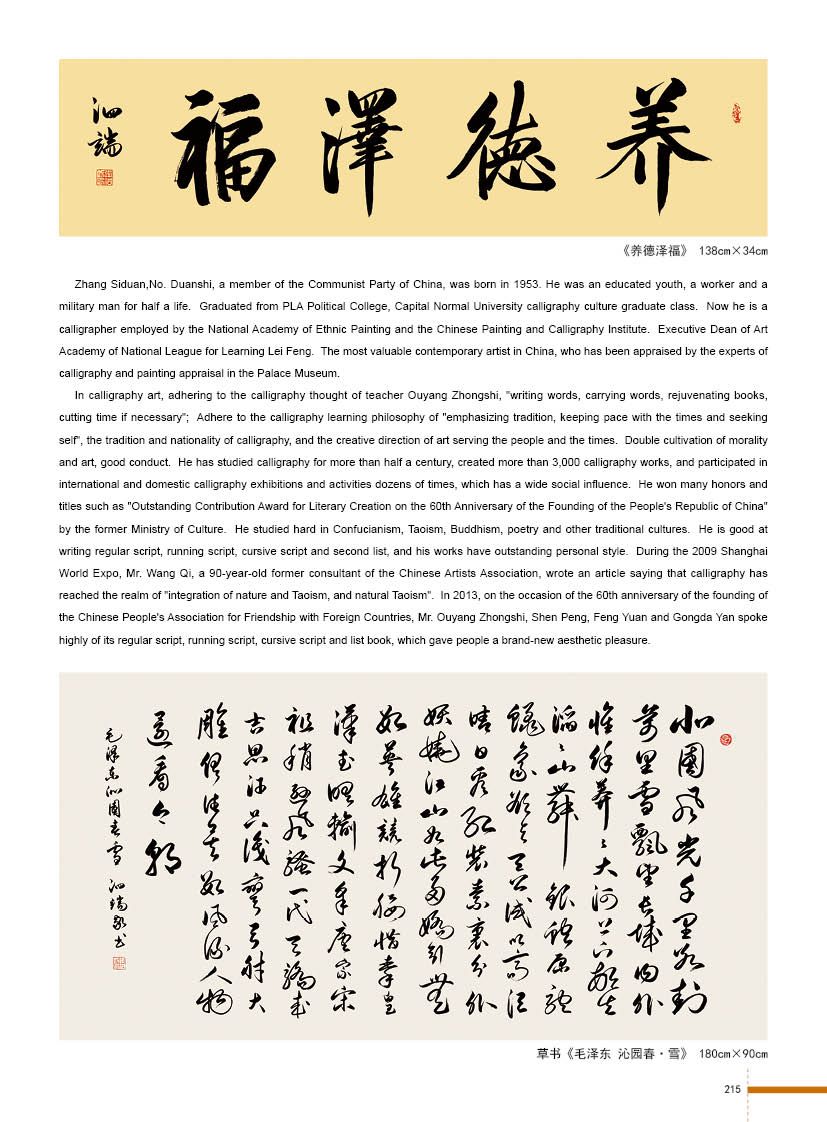 养德澤福
泗端
《养德泽福》 138cm×34cm
Zhang Siduan,No. Duanshi, a member of the Communist Party of China, was born in 1953. He was an educated youth, a worker and a
military man for half a life. Graduated from PLA Political College, Capital Normal University calligraphy culture graduate class. Now he is a
calligrapher employed by the National Academy of Ethnic Painting and the Chinese Painting and Calligraphy Institute. Executive Dean of Art
Academy of National League for Learning Lei Feng. The most valuable contemporary artist in China, who has been appraised by the experts of
calligraphy and painting appraisal in the Palace Museum.
In calligraphy art, adhering to the calligraphy thought of teacher Ouyang Zhongshi, "writing words, carrying words, rejuvenating books,
cutting time if necessary"; Adhere to the calligraphy learning philosophy of "emphasizing tradition, keeping pace with the times and seeking
self", the tradition and nationality of calligraphy, and the creative direction of art serving the people and the times. Double cultivation of morality
and art, good conduct. He has studied calligraphy for more than half a century, created more than 3,000 calligraphy works, and participated in
international and domestic calligraphy exhibitions and activities dozens of times, which has a wide social influence. He won many honors and
titles such as "Outstanding Contribution Award for Literary Creation on the 60th Anniversary of the Founding of the People's Republic of China"
by the former Ministry of Culture. He studied hard in Confucianism, Taoism, Buddhism, poetry and other traditional cultures. He is good at
writing regular script, running script, cursive script and second list, and his works have outstanding personal style. During the 2009 Shanghai
World Expo, Mr. Wang Qi, a 90-year-old former consultant of the Chinese Artists Association, wrote an article saying that calligraphy has
reached the realm of "integration of nature and Taoism, and natural Taoism". In 2013, on the occasion of the 60th anniversary of the founding of
the Chinese People's Association for Friendship with Foreign Countries, Mr. Ouyang Zhongshi, Shen Peng, Feng Yuan and Gongda Yan spoke
highly of its regular script, running script, cursive script and list book, which gave people a brand-new aesthetic pleasure.
北國風光千里冰封
萬里雪飄望長城內外
惟餘莽〻大河上下頓失
滔〻山舞銀蛇原馳
蠟象欲與天公試比高須
晴日看紅裝素裹分外
妖嬈江山如此多嬌引無
數英雄競折腰惜秦皇
漢武略輸文采唐宗宋
祖稍遜風騷一代天驕成
吉思汗只識彎弓射大
雕俱往矣數風流人物
還看今朝
毛澤東沁園春雪 泗端敬书
草书《毛泽东 沁园春·雪》 180cm×90cm
215